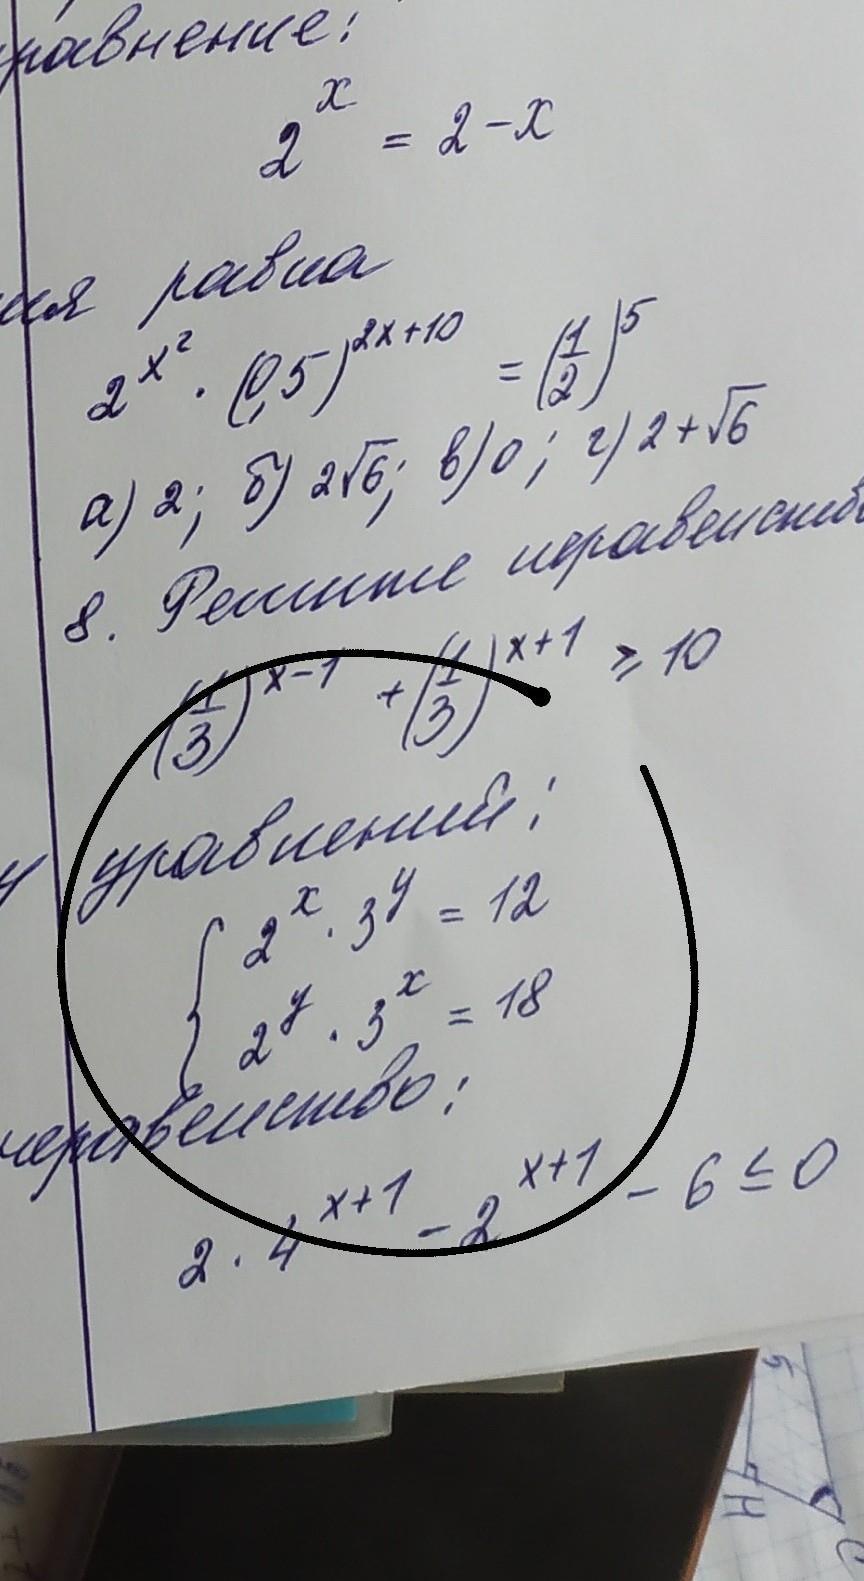 равнение:
2^x = 2 - x
ния равна
2^{x^2} · (0,5)^{2x+10} = (1/2)^5
а) 2; б) 2√6; в) 0; г) 2 + √6
8. Решите неравенство
(1/3)^{x-1} + (1/3)^{x+1} ≥ 10
у уравнений:
{ 2^x · 3^y = 12
2^y · 3^x = 18
неравенство:
2 · 4^{x+1} - 2^{x+1} - 6 ≤ 0